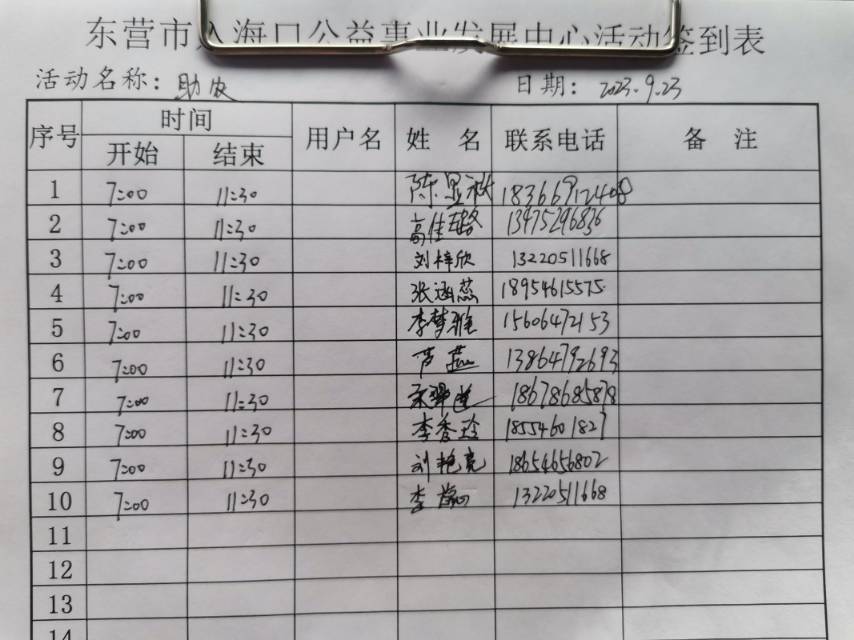 东营市入海口公益事业发展中心活动签到表
活动名称: 助皮 日期: 2023.9.23
序号 时间 用户名 姓 名 联系电话 备 注
开始 结束
1 7:00 11:30 陈显 18366912408
2 7:00 11:30 高佳 13475296836
3 7:00 11:30 刘梓欣 13220511668
4 7:00 11:30 张涵蕊 18954615575
5 7:00 11:30 李梦雅 15606472153
6 7:00 11:30 芦燕 13864792693
7 7:00 11:30 18678685878
8 7:00 11:30 李香玲 18554601827
9 7:00 11:30 刘艳亮 18654656802
10 7:00 11:30 李 13220511668
11
12
13
14